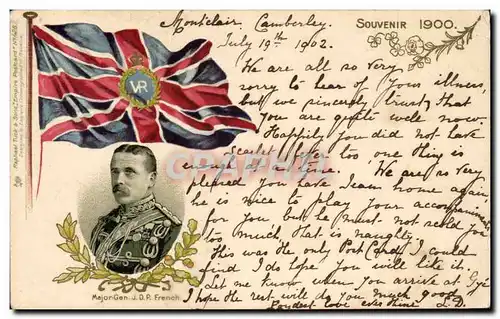 Souvenir 1900.
Montclair, Camberley.
July 19th 1902.
We are all so very
sorry to hear of your illness,
but we sincerely trust that
you are quite well now.
Happily you did not have
Scarlet fever too one thing is
enough at a time. We are so very
pleased you have home again
he is nice to play your accompaniments
for you but he must not scold you
too much, that is naughty.
This was the only Post Card I could
find I do hope you will like it.
Let me know when you arrive at
I hope the rest will do you much good.
Fondest love L.D.
VR
Major-Gen. J.D.P. French
Raphael Tuck & Sons' "Empire" Postcard